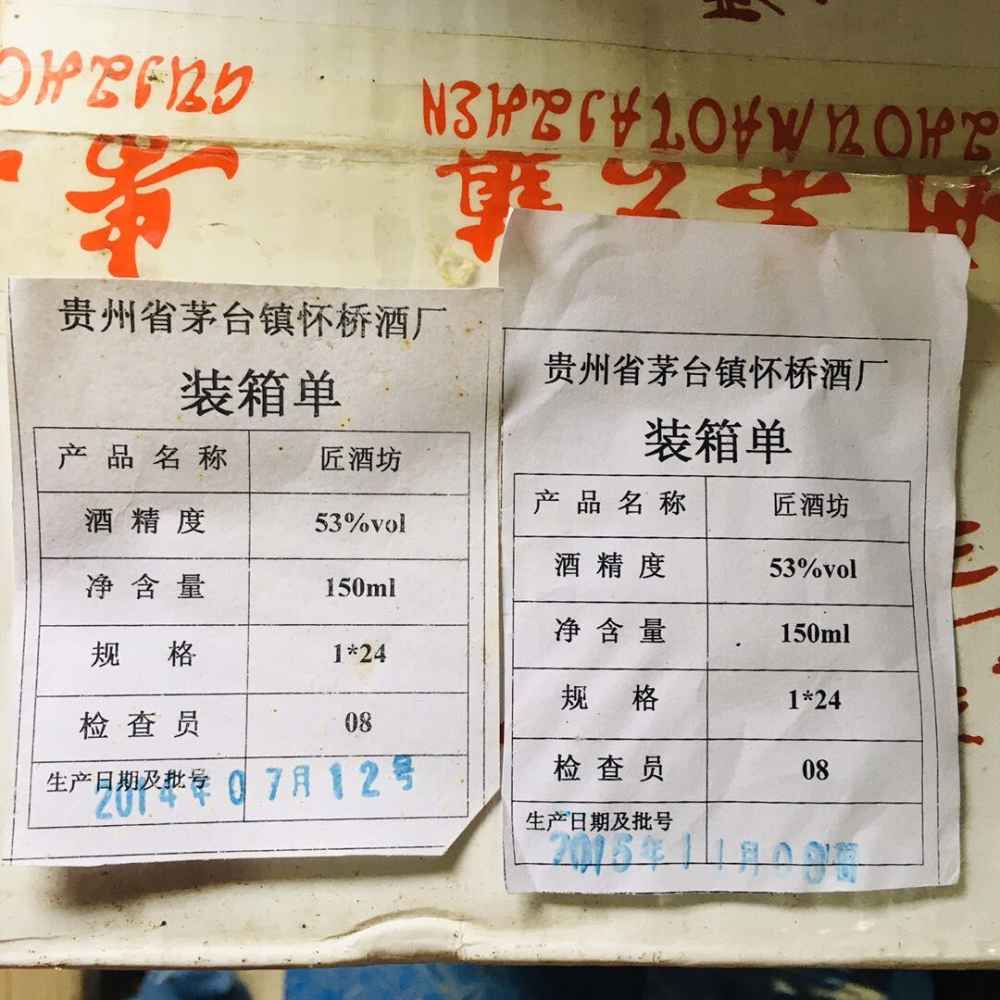 GUIZHO
ZHOU MAOTAIZHEN
茅台镇
贵州省茅台镇怀桥酒厂
装箱单
产品名称 匠酒坊
酒精度 53%vol
净含量 150ml
规格 1*24
检查员 08
生产日期及批号
2014年07月12号
贵州省茅台镇怀桥酒厂
装箱单
产品名称 匠酒坊
酒精度 53%vol
净含量 150ml
规格 1*24
检查员 08
生产日期及批号
2015年11月